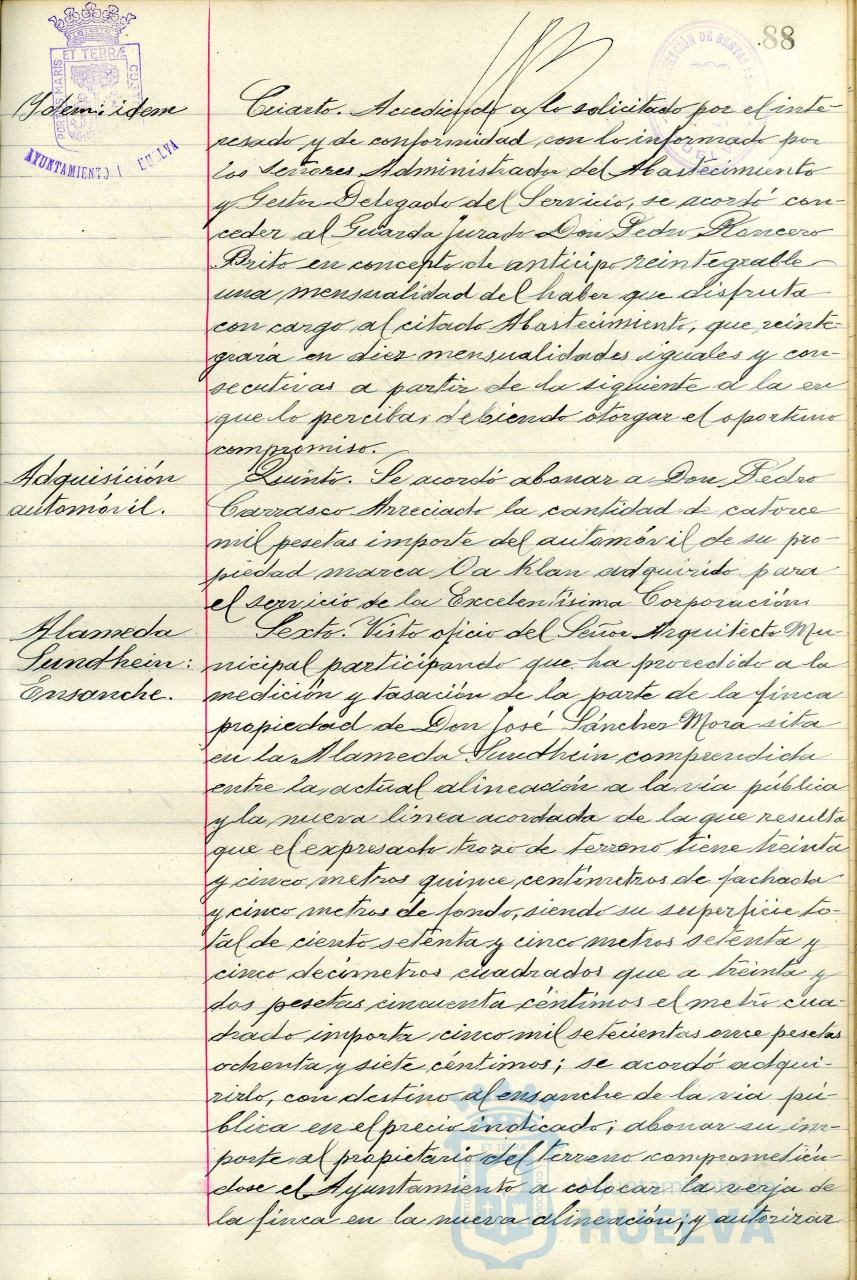 88
PORTUS MARIS ET TERRÆ CUSTO
AYUNTAMIENTO HUELVA
Ydem: idem
Cuarto. Accediendo a lo solicitado por el inte-
resado y de conformidad con lo informado por
los Señores Administrador del Abastecimiento
y Gestor Delegado del Servicio, se acordó con-
ceder al Guarda Jurado Don Pedro Roncero
Brito en concepto de anticipo reintegrable
una mensualidad del haber que disfruta
con cargo al citado Abastecimiento, que reinte-
grará en diez mensualidades iguales y con-
secutivas a partir de la siguiente a la en
que lo perciba, debiendo otorgar el oportuno
compromiso.
Adquisición
automóvil.
Quinto. Se acordó abonar a Don Pedro
Carrasco Arreciado la cantidad de catorce
mil pesetas importe del automóvil de su pro-
piedad marca Oa Klan adquirido para
el servicio de la Excelentísima Corporación.
Alameda
Sundhein:
Ensanche.
Sexto. Visto oficio del Señor Arquitecto Mu-
nicipal participando que ha procedido a la
medición y tasación de la parte de la finca
propiedad de Don José Sánchez Mora sita
en la Alameda Sundhein comprendida
entre la actual alineación a la vía pública
y la nueva línea acordada de la que resulta
que el expresado trozo de terreno tiene treinta
y cinco metros quince centímetros de fachada
y cinco metros de fondo, siendo su superficie to-
tal de ciento setenta y cinco metros setenta y
cinco decímetros cuadrados que a treinta y
dos pesetas cincuenta céntimos el metro cua-
drado importa cinco mil setecientas once pesetas
ochenta y siete céntimos; se acordó adqui-
rirlo, con destino al ensanche de la via pú-
blica en el precio indicado; abonar su im-
porte al propietario del terreno comprometién-
dose el Ayuntamiento a colocar la verja de
la finca en la nueva alineación; y autorizar
Ayuntamiento de
HUELVA